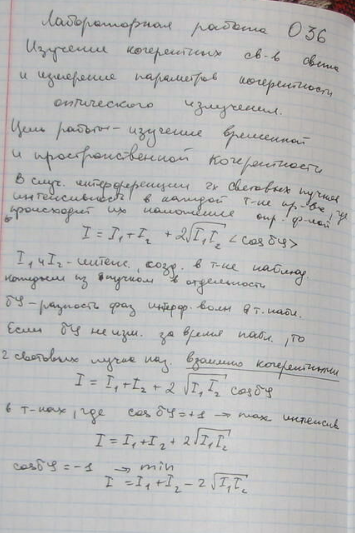 Лабораторная работа О36
Изучение когерентных св-в света
и измерение параметров когерентности
оптического излучения.
Цель работы - изучение временной
и пространственной когерентности
В случ. интерференции 2х световых пучков
интенсивность в каждой т-ке пр-ва, где
происходит их наложение опр. ф-лой
I = I₁+I₂ + 2√I₁I₂ <cosδφ>
I₁ и I₂ - интенс., созд. в т-ке наблюд.
каждым из пучков в отдельности
δφ - разность фаз интерф. волн в т. набл.
Если δφ не изм. за время набл., то
2 световых пучка наз. взаимно когерентными
I = I₁+I₂ + 2√I₁I₂ cosδφ
в т-ках, где cosδφ=+1 → max интенсив
I = I₁+I₂ + 2√I₁I₂
cosδφ=-1 → min
I = I₁+I₂ - 2√I₁I₂